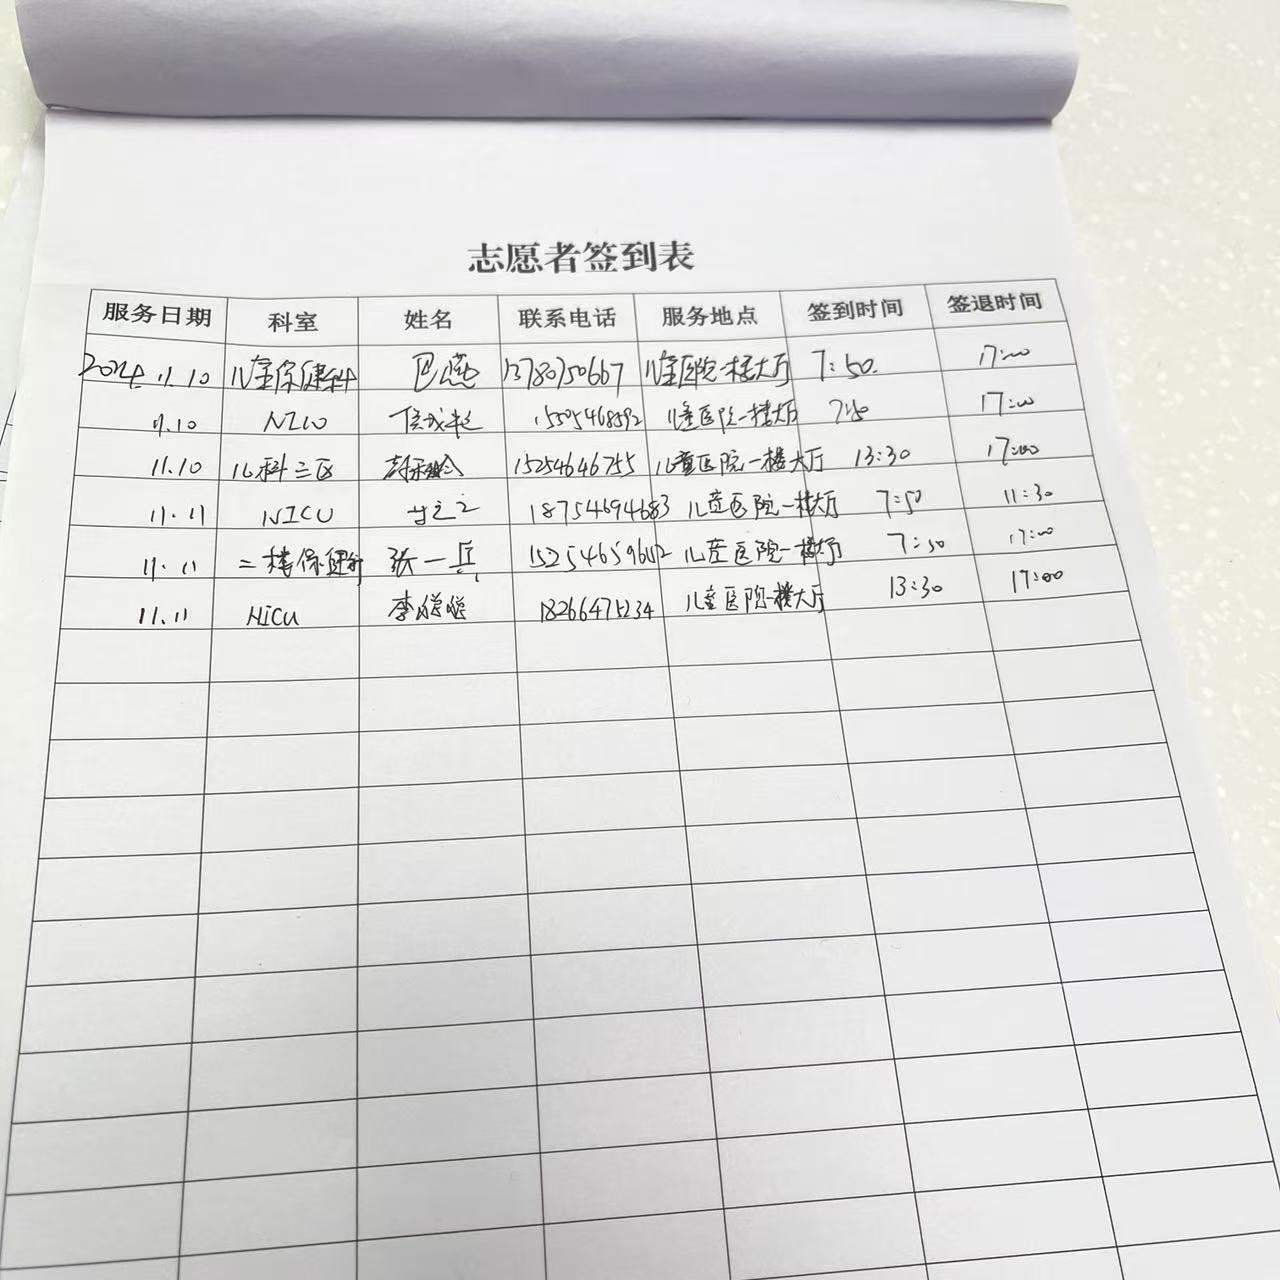 志愿者签到表
服务日期 科室 姓名 联系电话 服务地点 签到时间 签退时间
2024.11.10 儿童保健科 巴燕 13780750667 儿童医院一楼大厅 7:50 17:00
11.10 NICU 15505468592 儿童医院一楼大厅 7:50 17:00
11.10 儿科二区 15254646755 儿童医院一楼大厅 13:30 17:00
11.11 NICU 18754694683 儿童医院一楼大厅 7:50 11:30
11.11 二楼保健科 张一兵 儿童医院一楼大厅 7:50 17:00
11.11 NICU 李聪聪 18266475234 儿童医院一楼大厅 13:30 17:00